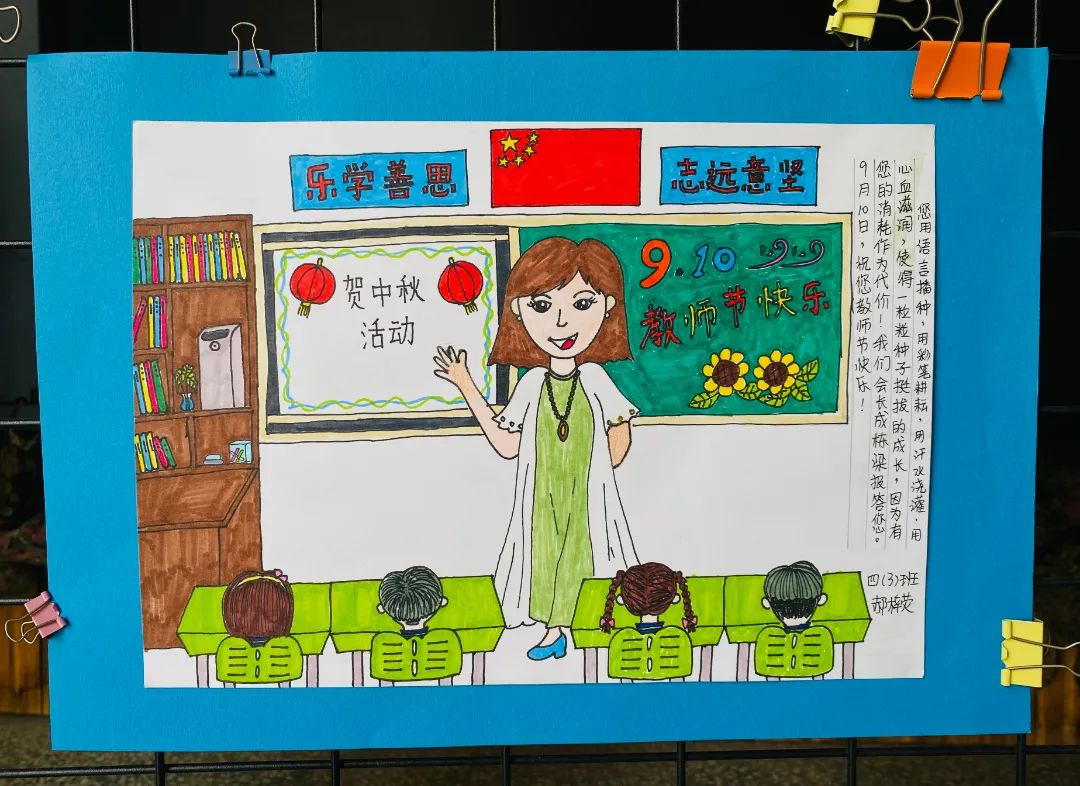 乐学善思
志远意坚
贺中秋
活动
9.10
教师节快乐
您用语言播种，用彩笔耕耘，用汗水浇灌，用
心血滋润，使得一粒粒种子挺拔的成长，因为有
您的消耗作为代价！我们会长成栋梁报答您。
9月10日，祝您教师节快乐！
四(3)班
郝梓荧